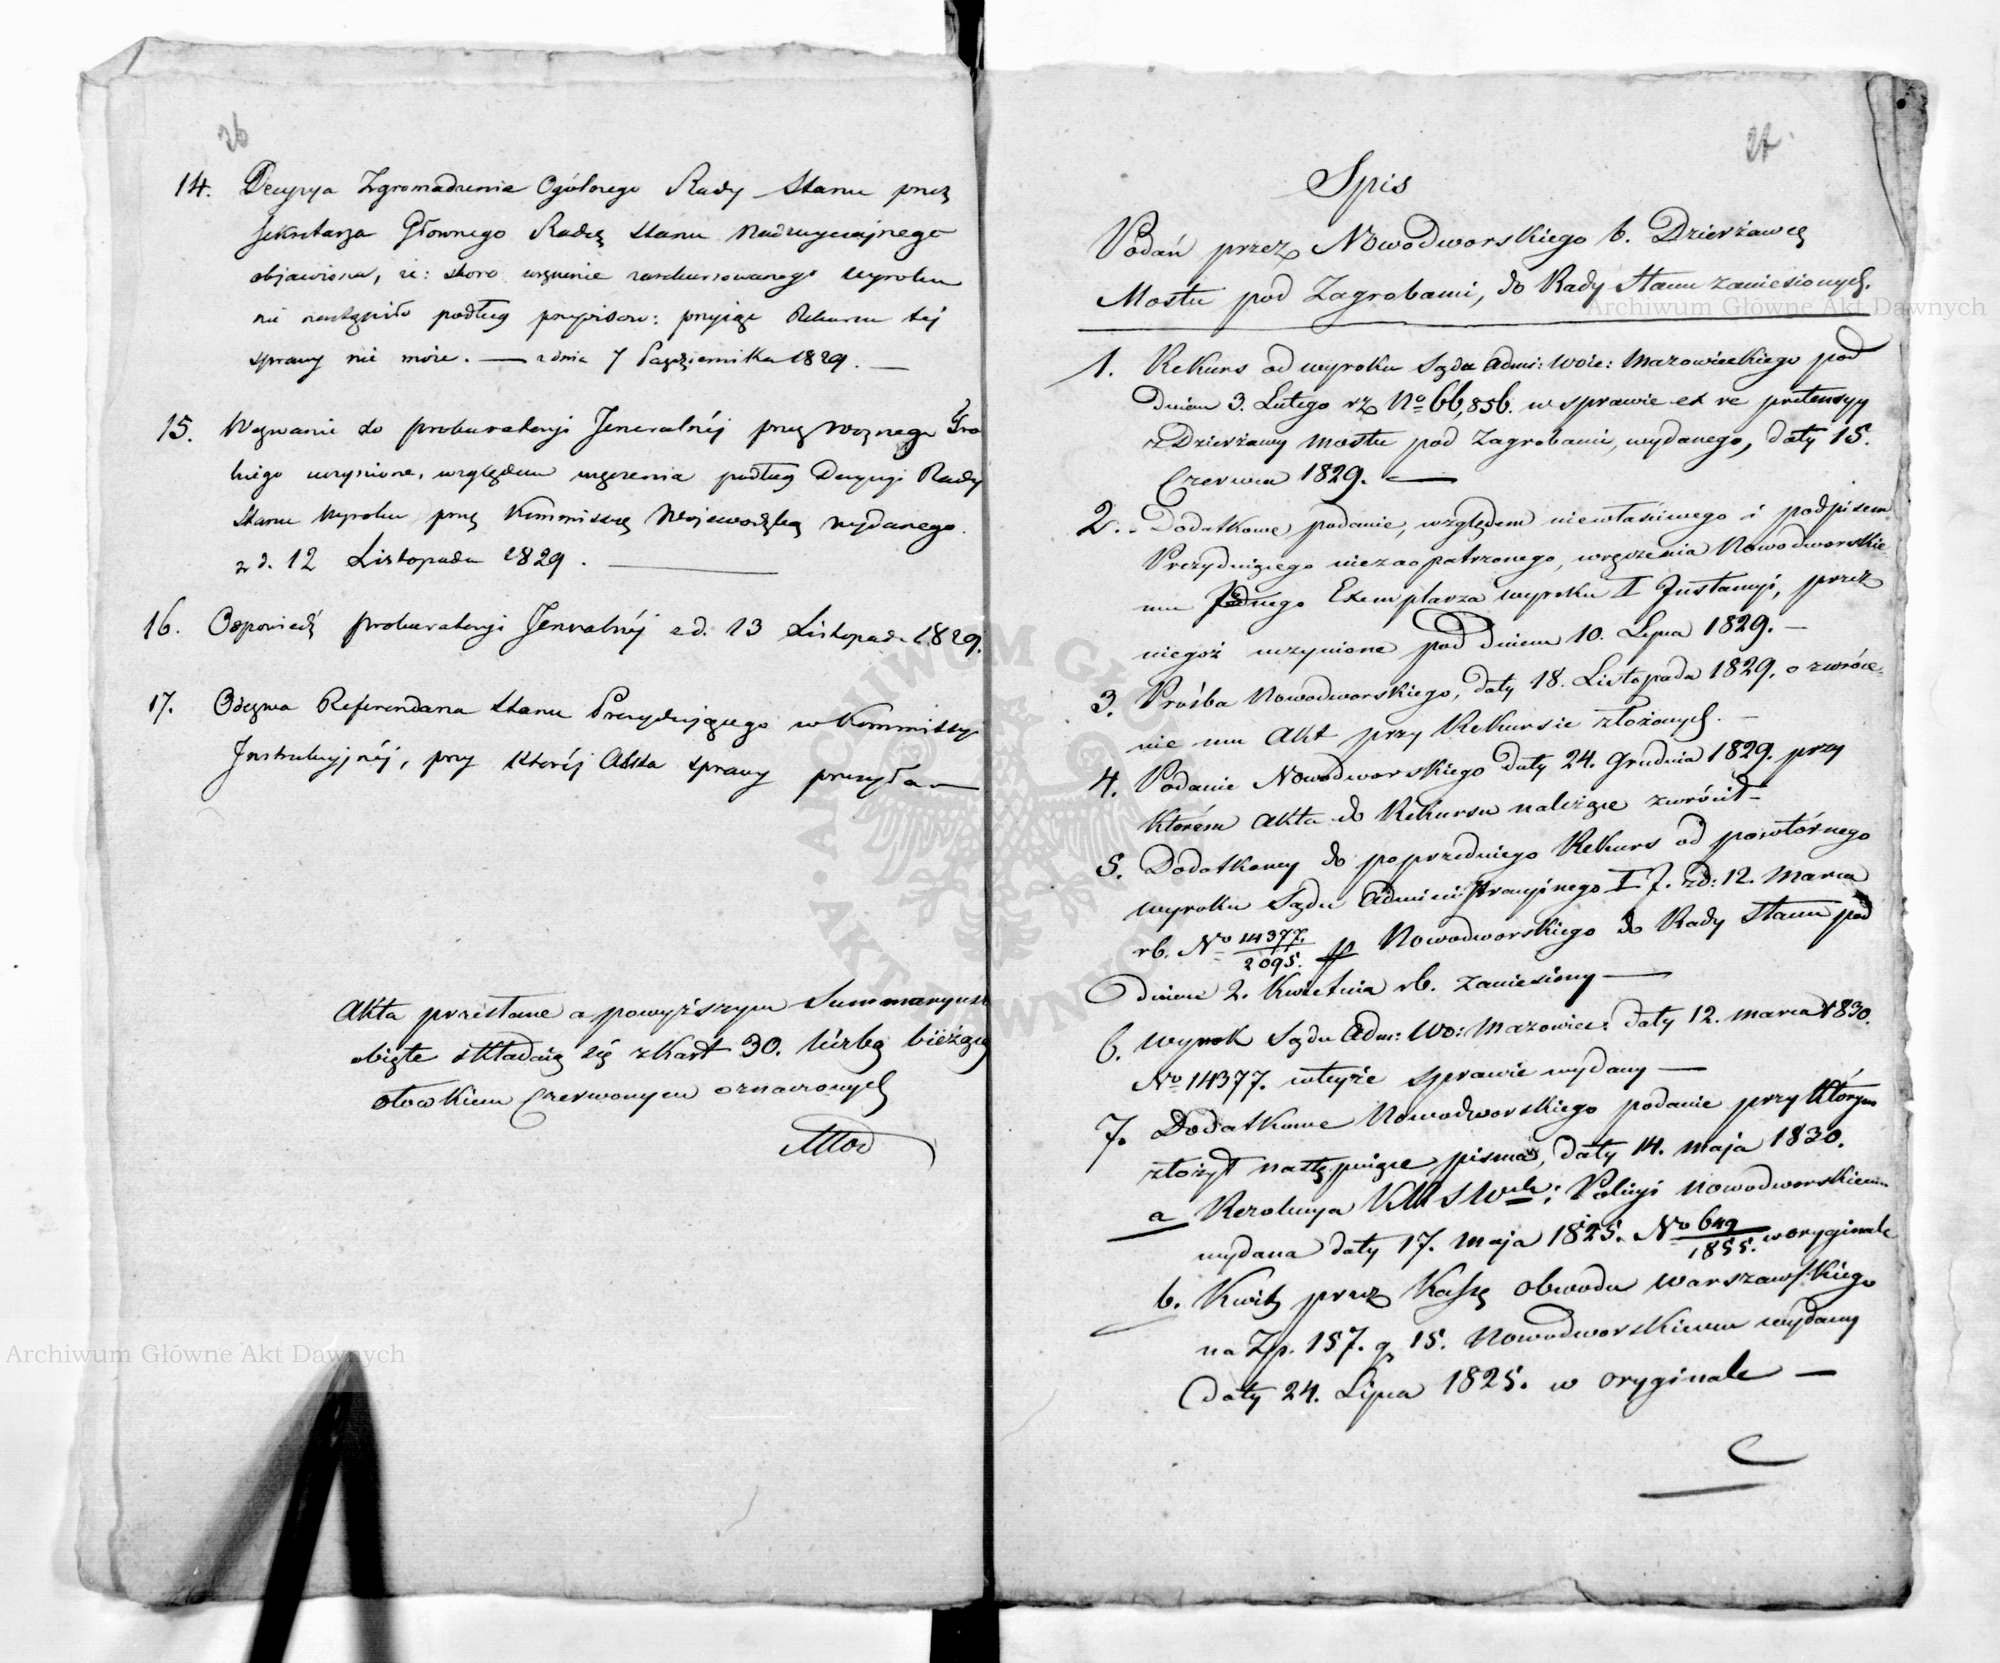 26
14. Decyzya Zgromadzenia Ogólnego Rady Stanu przez
Sekretarza Głównego Radcę Stanu Nadzwyczajnego
objawiona, że: skoro wręczenie zarekursowanego wyroku
nie nastąpiło podług przepisów: przyjąć Rekursu tej
sprawy nie może. — z dnia 7 Października 1829. —
15. Wezwanie do prokuratoryi Jeneralnéj przez Woznego
uczynione, względem wręczenia podług Decyzyi Rady
Stanu Wyroku przez Kommissyę Wojewódzką wydanego.
z d. 12 Listopada 1829. —
16. Odpowiedź prokuratoryi Jeneralnéj z d. 13 Listopada 1829.
17. Odezwa Referendarza Stanu Prezydującego w Kommissyi
Instrukcyjnéj, przy któréj Akta sprawy przesyła
Akta przesłane a powyższym Summaryuszem
objęte składają się z Kart 30. liczbą bieżącą
ołówkiem czerwonym oznaczonych
27
Spis
Podań przez Nowodworskiego b. Dzierżawcę
Mostu pod Zagrobami, do Rady Stanu zaniesionych.
1. Rekurs od wyroku Sądu Admi: Woie: Mazowieckiego pod
Dniem 3. Lutego rz No 66,856. w sprawie ex re pretensyy
z Dzierżawy mostu pod Zagrobami, wydanego, daty 15.
Czerwca 1829. —
2. Dodatkowe podanie, względem niewłaściwego i podpisem
Prezyduiącego niezaopatrzonego, wręczenia Nowodworskie-
mu Jednego Exemplarza wyroku I Instancyi, przez
niegoż uczynione pod Dniem 10. Lipca 1829. —
3. Prośba Nowodworskiego, daty 18. Listopada 1829, o zwróce-
nie mu Akt przy Rekursie złożonych. —
4. Podanie Nowodworskiego daty 24. Grudnia 1829. przy
którém Akta do Rekursu należące zwrócił —
5. Dodatkowy do poprzedniego Rekurs od powtórnego
wyroku Sądu Administracyinego I J. z d: 12. Marca
rb. No 14377/2095. pp Nowodworskiego do Rady Stanu pod
Dniem 2. Kwietnia rb. zaniesiony —
6. Wyrok Sądu Adm: Wo: Mazowiec: daty 12. marca 1830.
No 14377. w teyże sprawie wydany —
7. Dodatkowe Nowodworskiego podanie przy którym
złożył następuiące pisma, daty 14. maja 1830.
a Rezolucya KRSWeh: Policyi Nowodworskiemu
wydana daty 17. maja 1825. No 649/1855. w oryginale
b. Kwit przez Kassę obwodu Warszawskiego
na Zp. 157. g 15. Nowodworskiemu wydany
daty 24. Lipca 1825. w oryginale —
Archiwum Główne Akt Dawnych
Archiwum Główne Akt Dawnych
ARCHIWUM GŁÓWNE AKT DAWNYCH